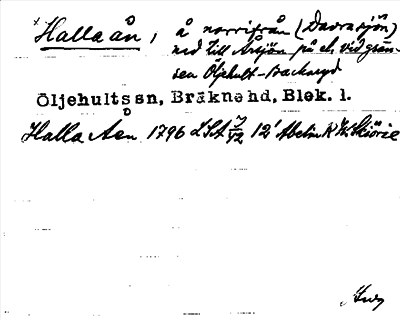 × Hallaån, å norrifrån (Davrasjön)
ned till Årsjön på el. vid grän-
sen Öljehult-Backaryd
Öljehultssn, Bräknehd, Blek. l.
Halla Åen 1796 LSA 7/12 12' Abelin R W Skiörie